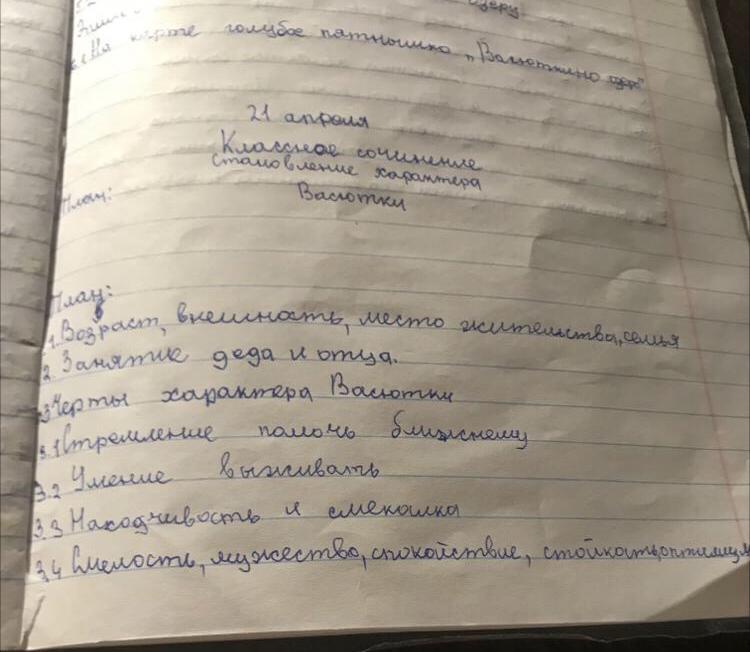 озеру
На карте голубое пятнышко „Васюткино озеро"
21 апреля
Классное сочинение
Становление характера
Васютки
План:
План:
1. Возраст, внешность, место жительства, семья
2 Занятие деда и отца.
3 Черты характера Васютки
3.1 Стремление помочь ближнему
3.2 Умение выживать
3.3 Находчивость и смекалка
3.4 Смелость, мужество, спокойствие, стойкость, оптимизм